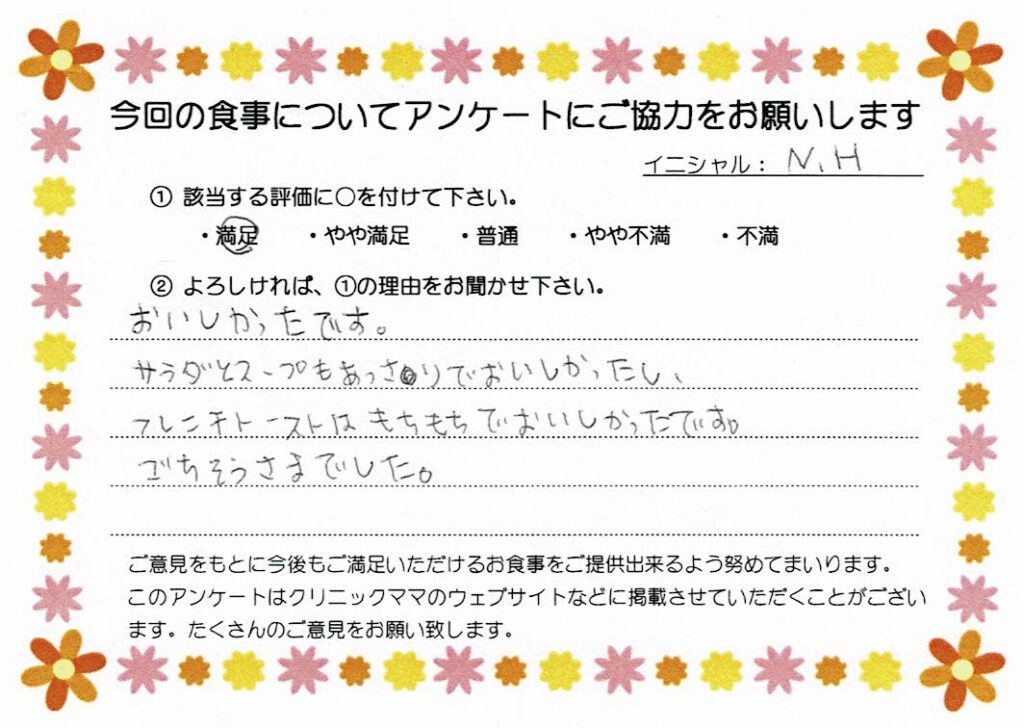 今回の食事についてアンケートにご協力をお願いします
イニシャル： N.H
① 該当する評価に○を付けて下さい。
・満足　・やや満足　・普通　・やや不満　・不満
② よろしければ、①の理由をお聞かせ下さい。
おいしかったです。
サラダとスープもあっさりでおいしかったし、
フレンチトーストはもちもちでおいしかったです。
ごちそうさまでした。
ご意見をもとに今後もご満足いただけるお食事をご提供出来るよう努めてまいります。
このアンケートはクリニックママのウェブサイトなどに掲載させていただくことがござい
ます。たくさんのご意見をお願い致します。